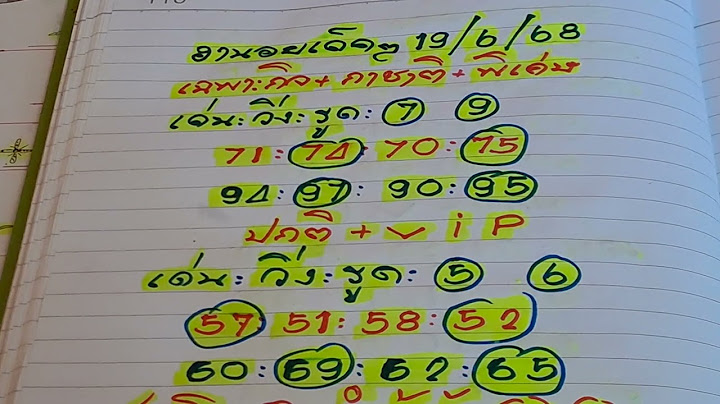 ฮานอยเจ็ดๆ 19/6/68
เฉพาะกิจ + กาชาติ + พิเศษ
เด่น: วิ่ง: รูด: 7 9
71: 74: 70: 75
94: 97: 90: 95
ปกติ + V i P
เด่น: วิ่ง: รูด: 5 6
57: 51: 58: 52
60: 69: 62: 65